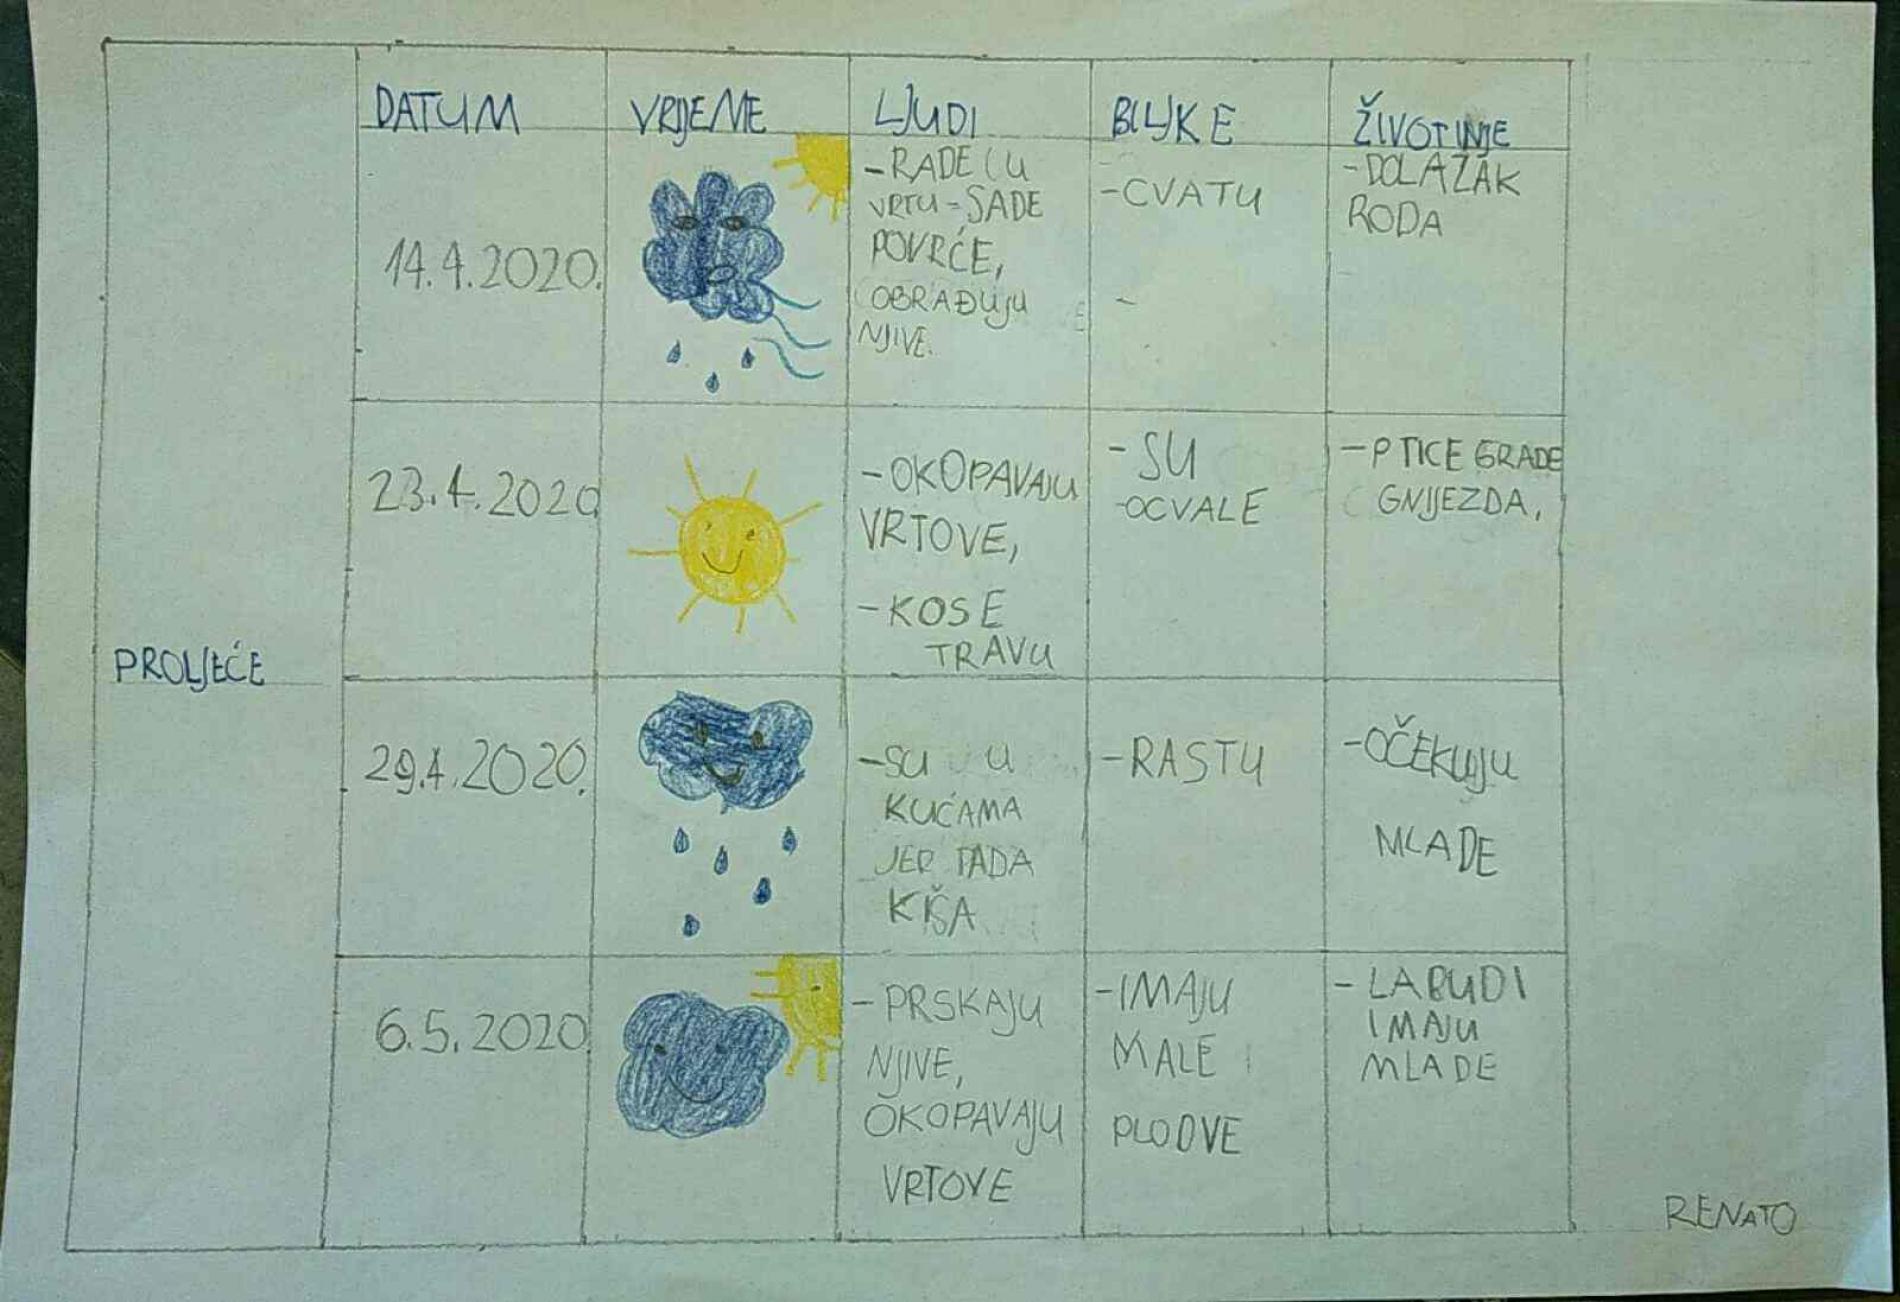 DATUM VRIJEME LJUDI BILJKE ŽIVOTINJE
PROLJEĆE
14.4.2020.
-RADE U
VRTU-SADE
POVRĆE,
OBRAĐUJU
NJIVE.
-CVATU
-
-DOLAZAK
RODA
23.4.2020
-OKOPAVAJU
VRTOVE,
-KOSE
TRAVU
-SU
-OCVALE
-PTICE GRADE
GNIJEZDA,
29.4.2020.
-SU U
KUĆAMA
JER PADA
KIŠA
-RASTU
-OČEKUJU
MLADE
6.5.2020
-PRSKAJU
NJIVE,
OKOPAVAJU
VRTOVE
-IMAJU
MALE
PLODVE
-LABUDI
IMAJU
MLADE
RENATO